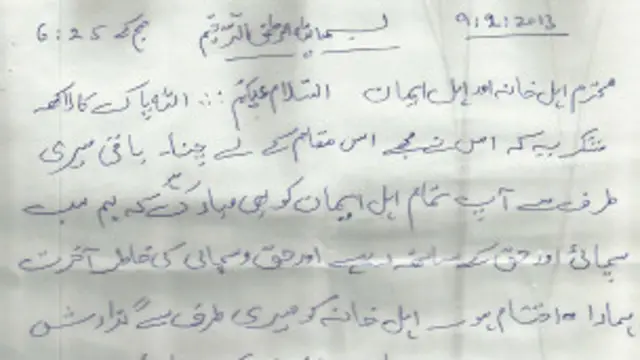 9:2:2013 بسم اللہ الرحمٰن الرحیم صبح کے 6:25
محترم اہل خانہ اور اہل ایمان السلام علیکم ::: اللہ پاک کا لاکھ
شکر ہے کہ اس نے مجھے اس مقام کے لے چنا۔ باقی میری
طرف سے آپ تمام اہل ایمان کو بھی مبارک کہ ہم سب
سچائی اور حق کے ساتھ رہے اور حق و سچائی کی خاطر آخرت
ہمارا اختتام ہو۔ اہل خانہ کو میری طرف سے گذارش